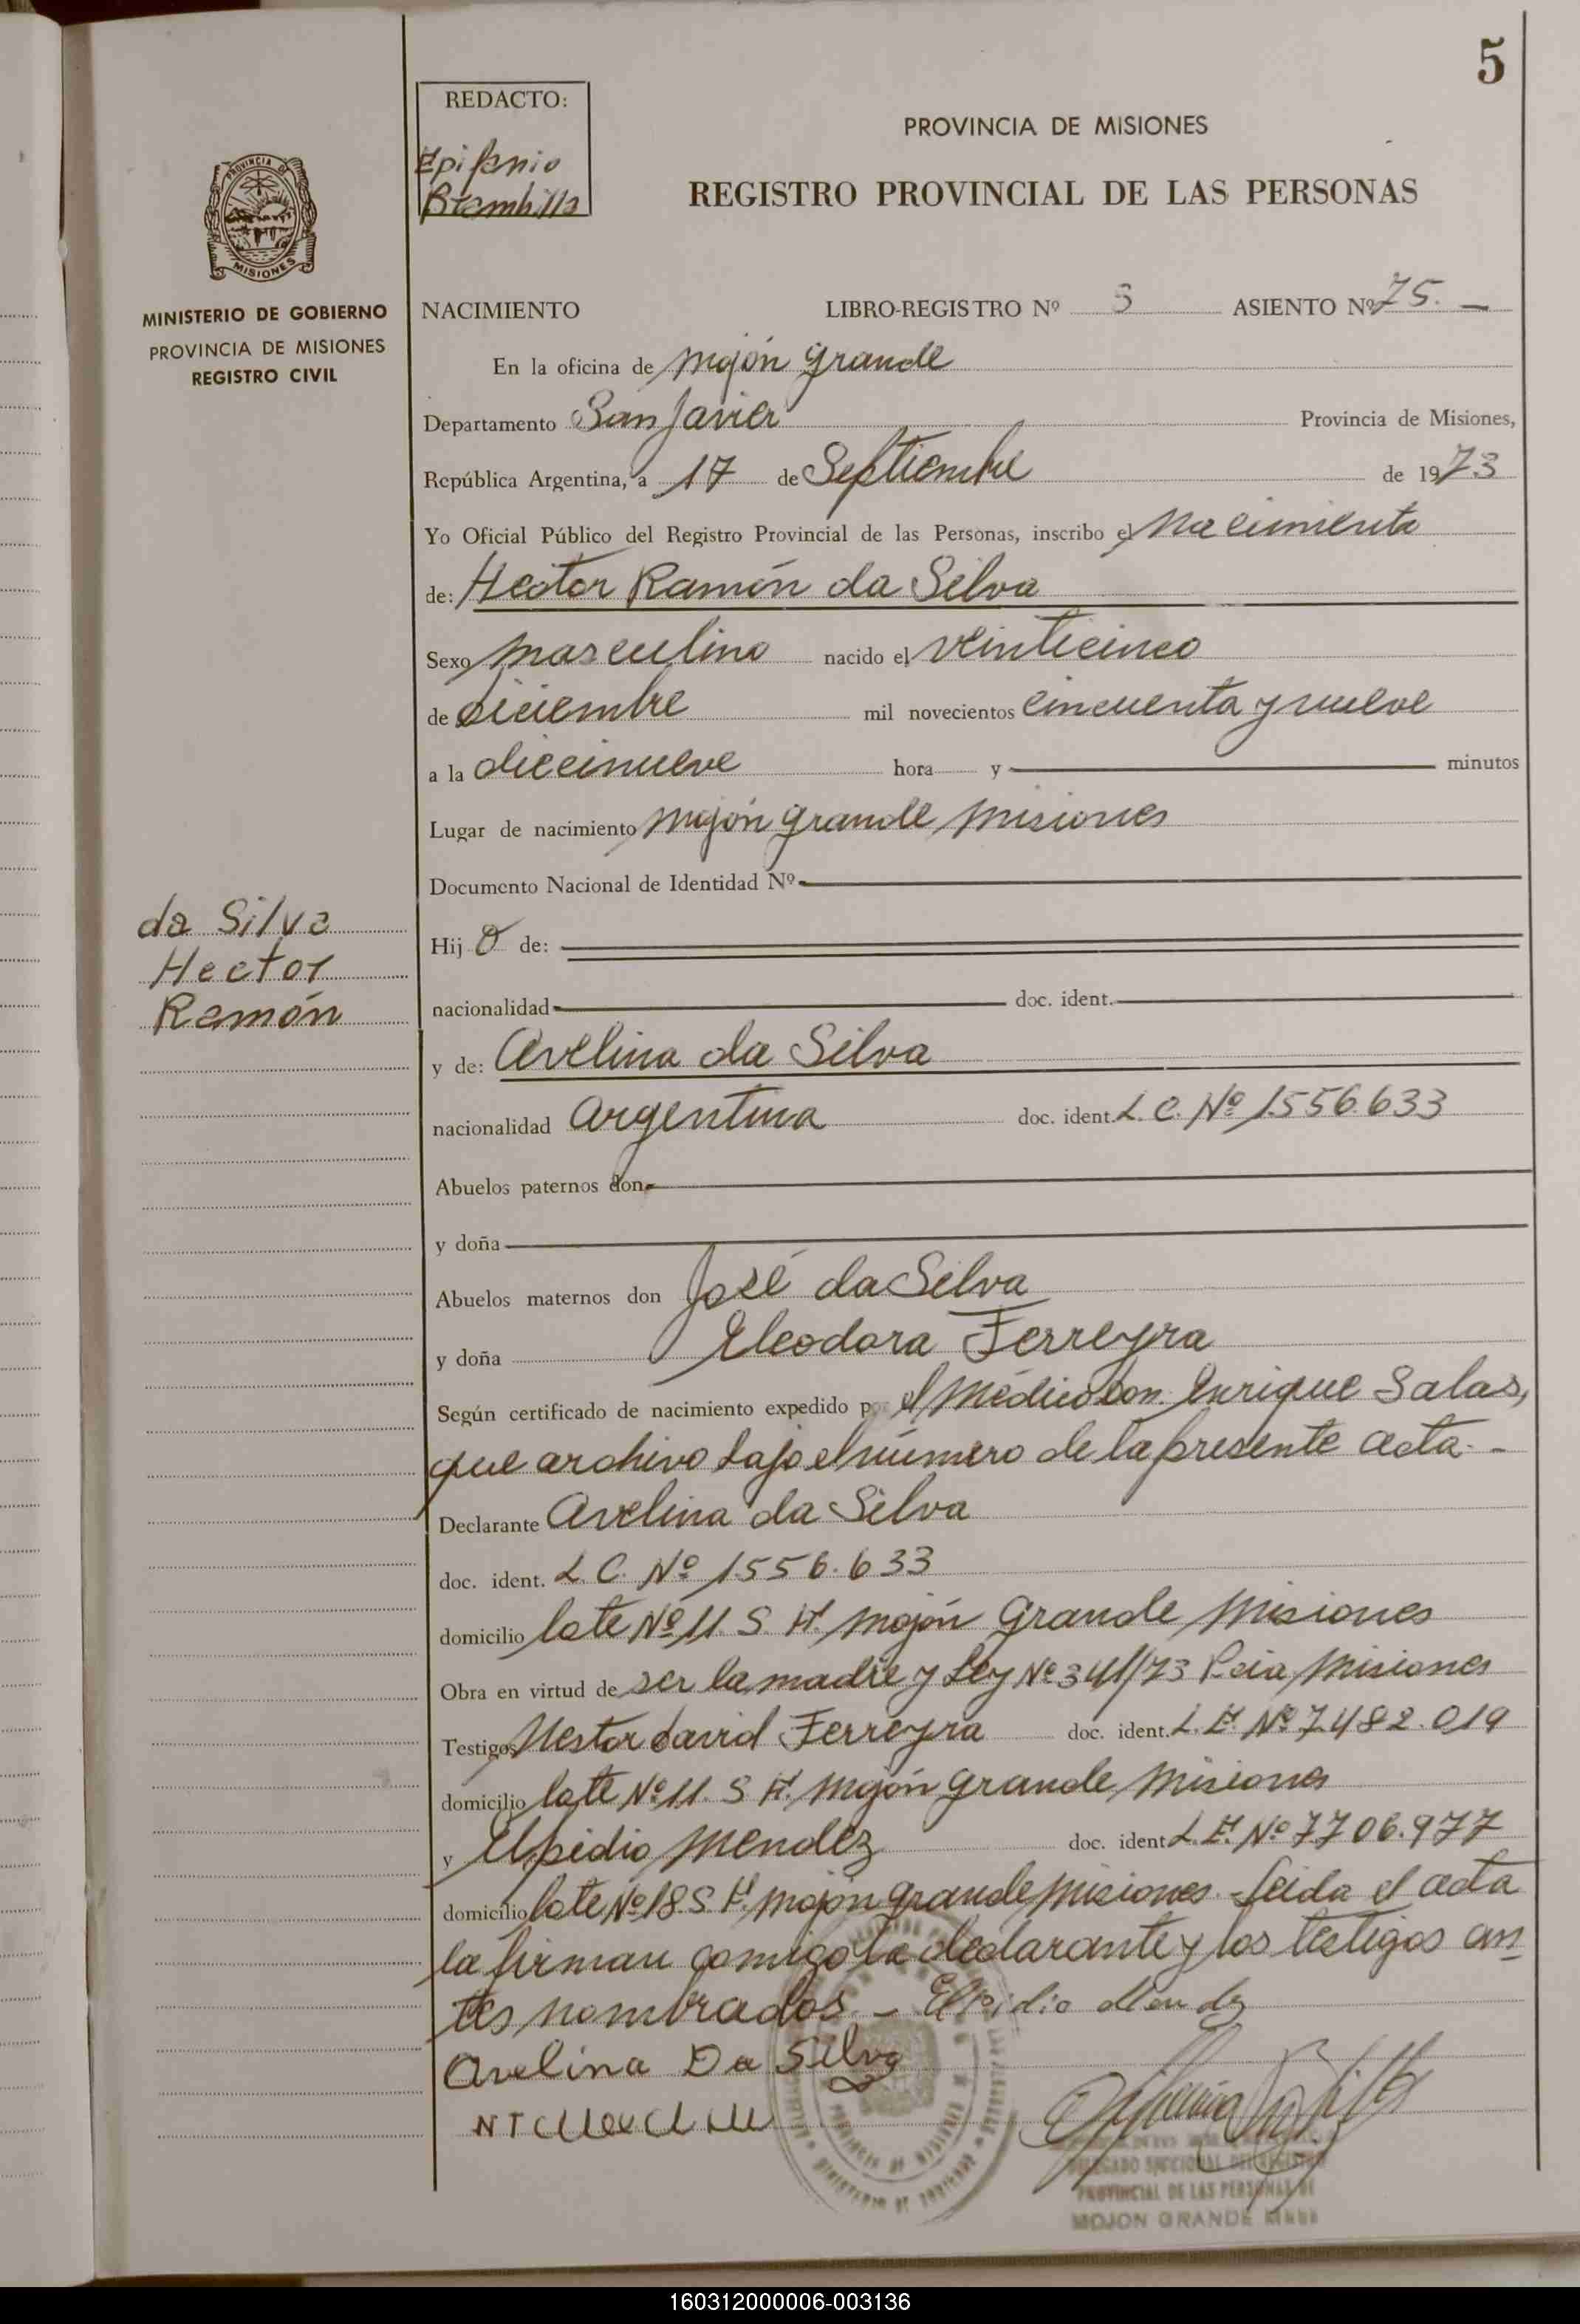 5
REDACTO:
Epifanio
Brambilla
PROVINCIA DE MISIONES
REGISTRO PROVINCIAL DE LAS PERSONAS
PROVINCIA DE
MISIONES
MINISTERIO DE GOBIERNO
PROVINCIA DE MISIONES
REGISTRO CIVIL
NACIMIENTO LIBRO-REGISTRO Nº 3 ASIENTO Nº 75. —
En la oficina de Mojón Grande
Departamento San Javier Provincia de Misiones,
República Argentina, a 17 de Septiembre de 1973
Yo Oficial Público del Registro Provincial de las Personas, inscribo el Nacimiento
de: Hector Ramón da Silva
Sexo masculino nacido el veinticinco
de diciembre mil novecientos cincuenta y nueve
a la diecinueve hora y minutos
Lugar de nacimiento Mojón Grande Misiones
Documento Nacional de Identidad Nº
da Silva
Hector
Ramón
Hijo de:
nacionalidad doc. ident.
y de: Avelina da Silva
nacionalidad Argentina doc. ident. L. C. Nº 1.556.633
Abuelos paternos don
y doña
Abuelos maternos don José da Silva
y doña Eleodora Ferreyra
Según certificado de nacimiento expedido por el Médico Don. Enrique Salas,
que archivo bajo el número de la presente acta. -
Declarante Avelina da Silva
doc. ident. L. C. Nº 1.556.633
domicilio lote Nº 11. S. H. Mojón Grande Misiones
Obra en virtud de ser la madre y Ley Nº 341/73 Pcia Misiones
Testigos Nestor David Ferreyra doc. ident. L. E. Nº 7.482.019
domicilio lote Nº 11. S H. Mojón Grande Misiones
y Elpidio Mendez doc. ident. L. E. Nº 7.706.977
domicilio lote Nº 18 S H. Mojón Grande Misiones - Leida el acta
la firman comigo la declarante y los testigos an-
tes nombrados. - Elpidio Mendz
Avelina Da Silva
DELEGADO SECCIONAL DEL REGISTRO
PROVINCIAL DE LAS PERSONAS DE
MOJON GRANDE
160312000006-003136